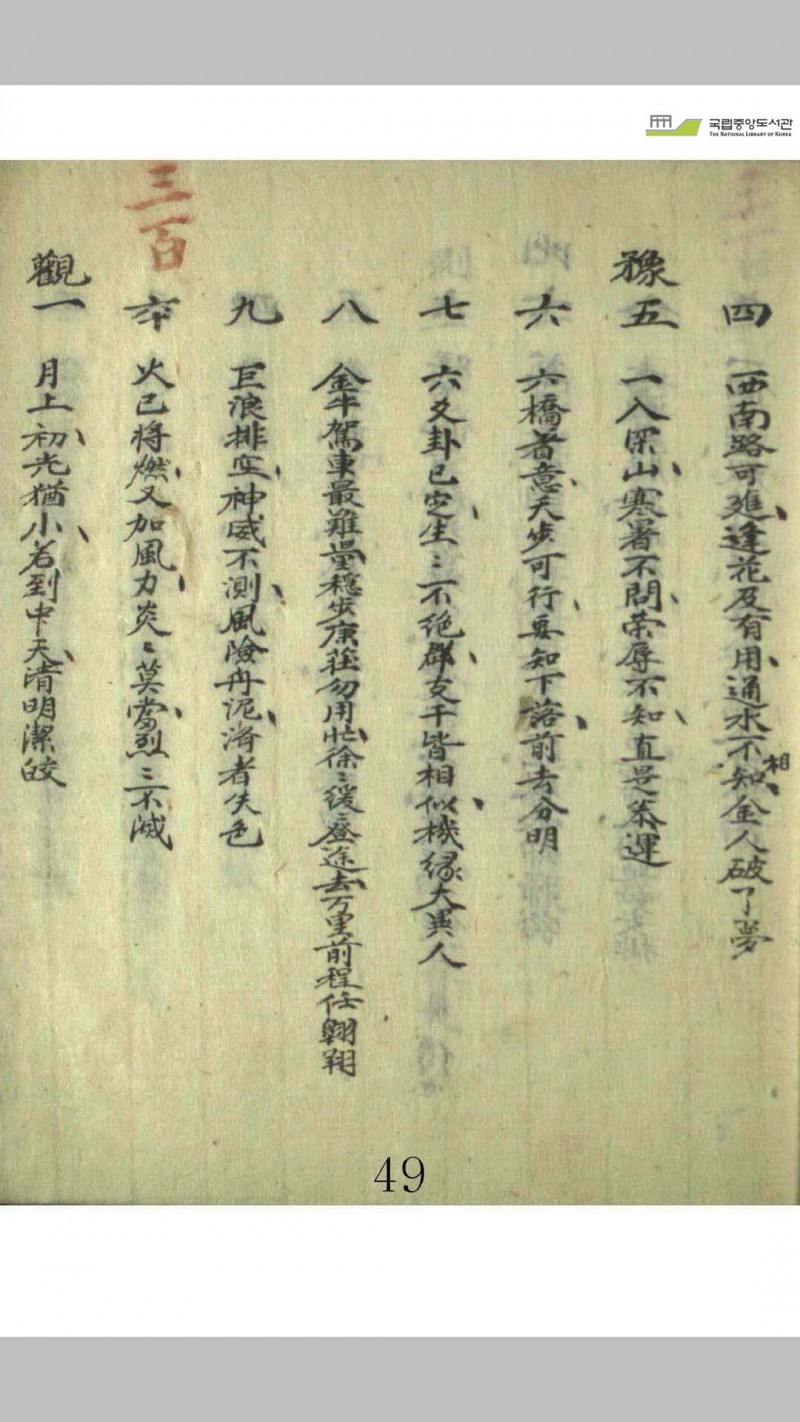 國립중앙도서관
THE NATIONAL LIBRARY OF KOREA
四 西南路可進逢花及有用通水不知相金人破了夢
豫 五 一入罙山寒暑不問荣辱不知直是運
六 六橋着意天步可行要知下落前去分明
七 六爻卦已定生〻不绝群支干皆相似機緣大異人
八 金牛駕車最難量穩步康莊勿用忙徐〻緩〻登途去万里前程任翱翔
九 巨浪排空神威不測風險舟泥済者失色
三百 火已将燃又加風力炎〻莫當烈〻不滅
觀 一 月上初光猶小若到中天清明潔皎
49